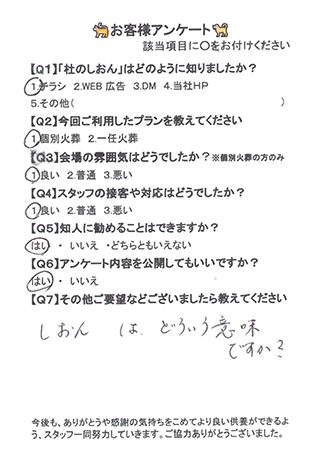 お客様アンケート
該当項目に〇をお付けください
【Q1】「杜のしおん」はどのように知りましたか？
1.チラシ 2.WEB広告 3.DM 4.当社HP
5.その他( )
【Q2】今回ご利用したプランを教えてください
1.個別火葬 2.一任火葬
【Q3】会場の雰囲気はどうでしたか？※個別火葬の方のみ
1.良い 2.普通 3.悪い
【Q4】スタッフの接客や対応はどうでしたか？
1.良い 2.普通 3.悪い
【Q5】知人に勧めることはできますか？
はい ・ いいえ ・どちらともいえない
【Q6】アンケート内容を公開してもいいですか？
はい ・ いいえ
【Q7】その他ご要望などございましたら教えてください
しおん は、どういう意味
ですか？
今後も、ありがとうや感謝の気持ちをこめてより良い供養ができるよ
う、スタッフ一同努力していきます。ご協力ありがとうございました。